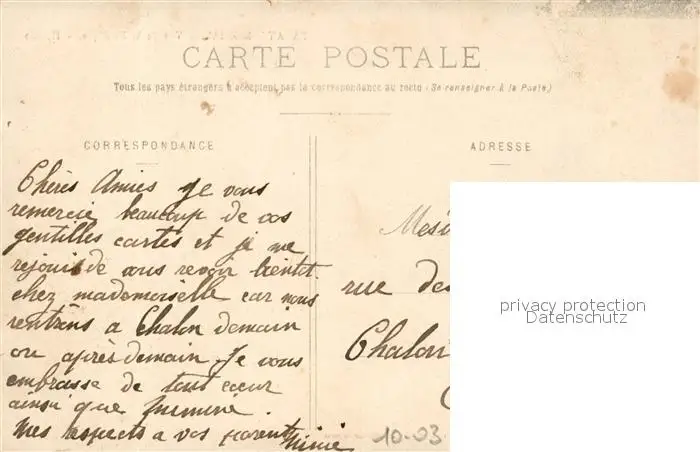 CARTE POSTALE
Tous les pays étrangers n'acceptent pas la correspondance au recto (Se renseigner à la Poste)
CORRESPONDANCE
Chères Amies je vous
remercie beaucoup de vos
gentilles cartes et je me
rejouis de vous revoir bientot
chez mademoiselle car nous
rentrons a Chalon demain
ou après demain. Je vous
embrasse de tout cœur
ainsi que
Mes respects a vos parents
ADRESSE
rue des
Chalon
privacy protection
Datenschutz
10-03